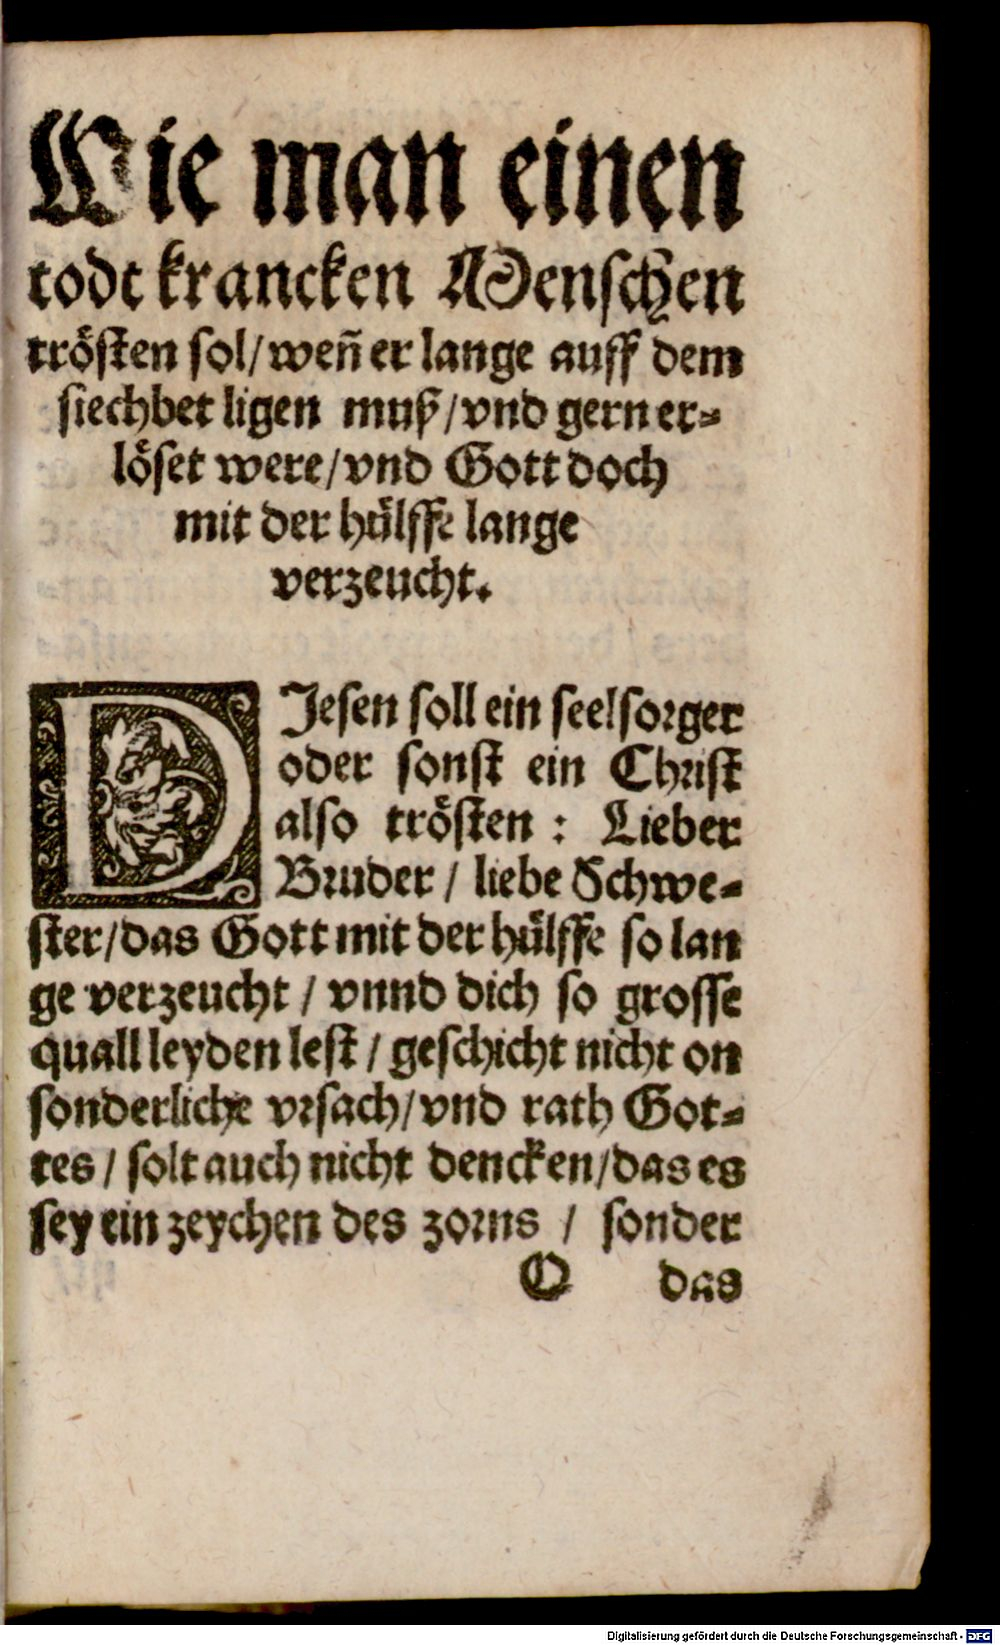 Wie man einen
todt krancken Menschen
trösten sol/ weñ er lange auff dem
siechbet ligen muß/ vnd gern er⸗
löset were/ vnd Gott doch
mit der hülffe lange
verzeucht.
DIesen soll ein seelsorger
oder sonst ein Christ
also trösten : Lieber
Bruder / liebe Schwe⸗
ster/ das Gott mit der hülffe so lan
ge verzeucht / vnnd dich so grosse
quall leyden lest / geschicht nicht on
sonderliche vrsach/ vnd rath Got⸗
tes / solt auch nicht dencken/ das es
sey ein zeychen des zorns / sonder
O das
Digitalisierung gefördert durch die Deutsche Forschungsgemeinschaft - DFG